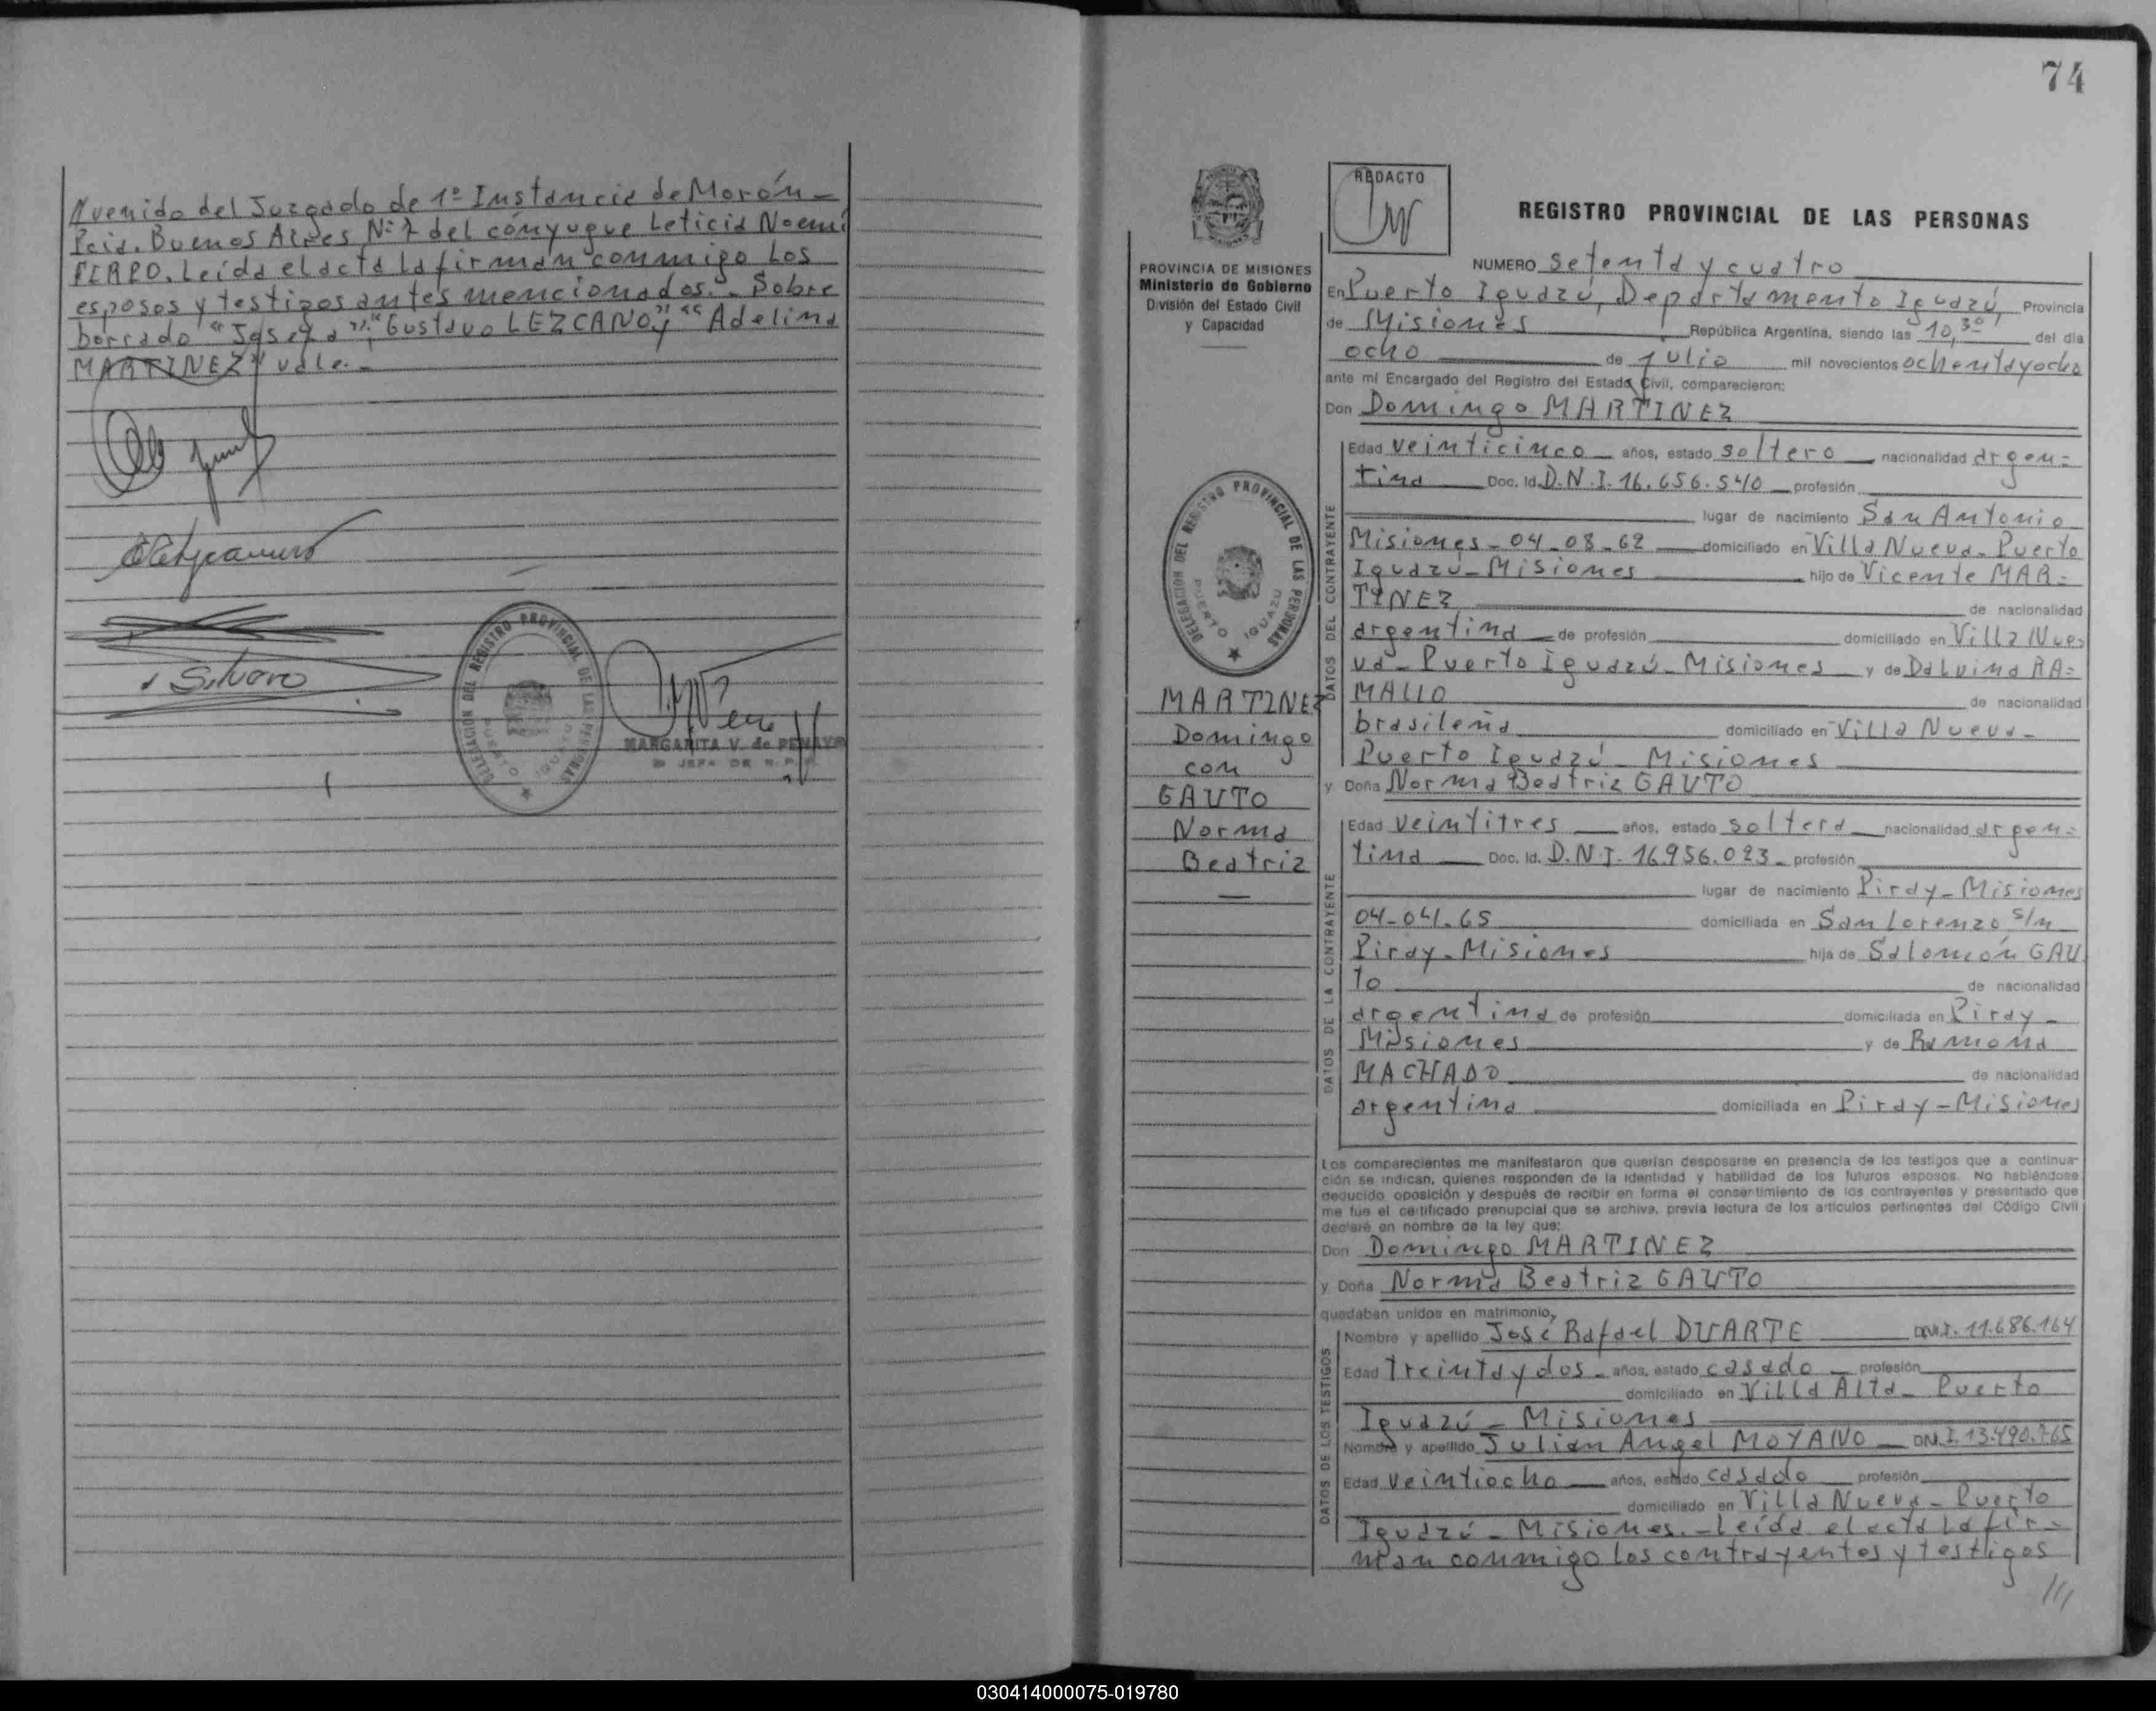 Avenida del Juzgado de 1º Instancia de Morón -
Pcia. Buenos Aires Nº 7 del cónyugue Leticia Noemí
Leída el acta la firman conmigo los
esposos y testigos antes mencionados.- Sobre
borrado "Josefa"; "Gustavo LEZCANO" y "Adelina
MARTINEZ" vale.-
Silvero
DELEGACION DEL REGISTRO PROVINCIAL DE LAS PERSONAS
PUERTO IGUAZU
MARGARITA V. de PENAYO
JEFA DE R. P. P.
74
REDACTO
REGISTRO PROVINCIAL DE LAS PERSONAS
PROVINCIA DE MISIONES
Ministerio de Gobierno
División del Estado Civil
y Capacidad
NUMERO setenta y cuatro
En Puerto Iguazú, Departamento Iguazú, Provincia
de Misiones República Argentina, siendo las 10,30 del día
ocho de julio mil novecientos ochenta y ocho
ante mí Encargado del Registro del Estado Civil, comparecieron:
Don Domingo MARTINEZ
DATOS DEL CONTRAYENTE
Edad veinticinco años, estado soltero nacionalidad argen=
tina Doc. Id. D.N.I. 16.656.540 profesión
lugar de nacimiento San Antonio
Misiones - 04-08-62 domiciliado en Villa Nueva - Puerto
Iguazú - Misiones hijo de Vicente MAR=
TINEZ de nacionalidad
argentina de profesión domiciliado en Villa Nue=
va - Puerto Iguazú - Misiones y de Dalvina RA=
MALLO de nacionalidad
brasileña domiciliado en Villa Nueva -
Puerto Iguazú - Misiones
y Doña Norma Beatriz GAUTO
DELEGACION DEL REGISTRO PROVINCIAL DE LAS PERSONAS
PUERTO IGUAZU
MARTINEZ
Domingo
con
GAUTO
Norma
Beatriz
DATOS DE LA CONTRAYENTE
Edad veintitres años, estado soltera nacionalidad argen=
tina Doc. Id. D.N.I. 16.956.023 profesión
lugar de nacimiento Piray - Misiones
04-04-65 domiciliada en San Lorenzo s/n
Piray - Misiones hija de Salomón GAU
TO de nacionalidad
argentina de profesión domiciliada en Piray -
Misiones y de Ramona
MACHADO de nacionalidad
argentina domiciliada en Piray - Misiones
Los comparecientes me manifestaron que querían desposarse en presencia de los testigos que a continua-
ción se indican, quienes responden de la identidad y habilidad de los futuros esposos. No habiéndose
deducido oposición y después de recibir en forma el consentimiento de los contrayentes y presentado que
me fue el certificado prenupcial que se archiva, previa lectura de los artículos pertinentes del Código Civil
declaré en nombre de la ley que:
Don Domingo MARTINEZ
y Doña Norma Beatriz GAUTO
quedaban unidos en matrimonio,
DATOS DE LOS TESTIGOS
Nombre y apellido José Rafael DUARTE DN.I. 11.686.164
Edad treinta y dos años, estado casado profesión
domiciliado en Villa Alta - Puerto
Iguazú - Misiones
Nombre y apellido Julian Angel MOYANO DN.I. 13.490.765
Edad veintiocho años, estado casado profesión
domiciliado en Villa Nueva - Puerto
Iguazú - Misiones.- Leída el acta la fir=
man conmigo los contrayentes y testigos
///
030414000075-019780